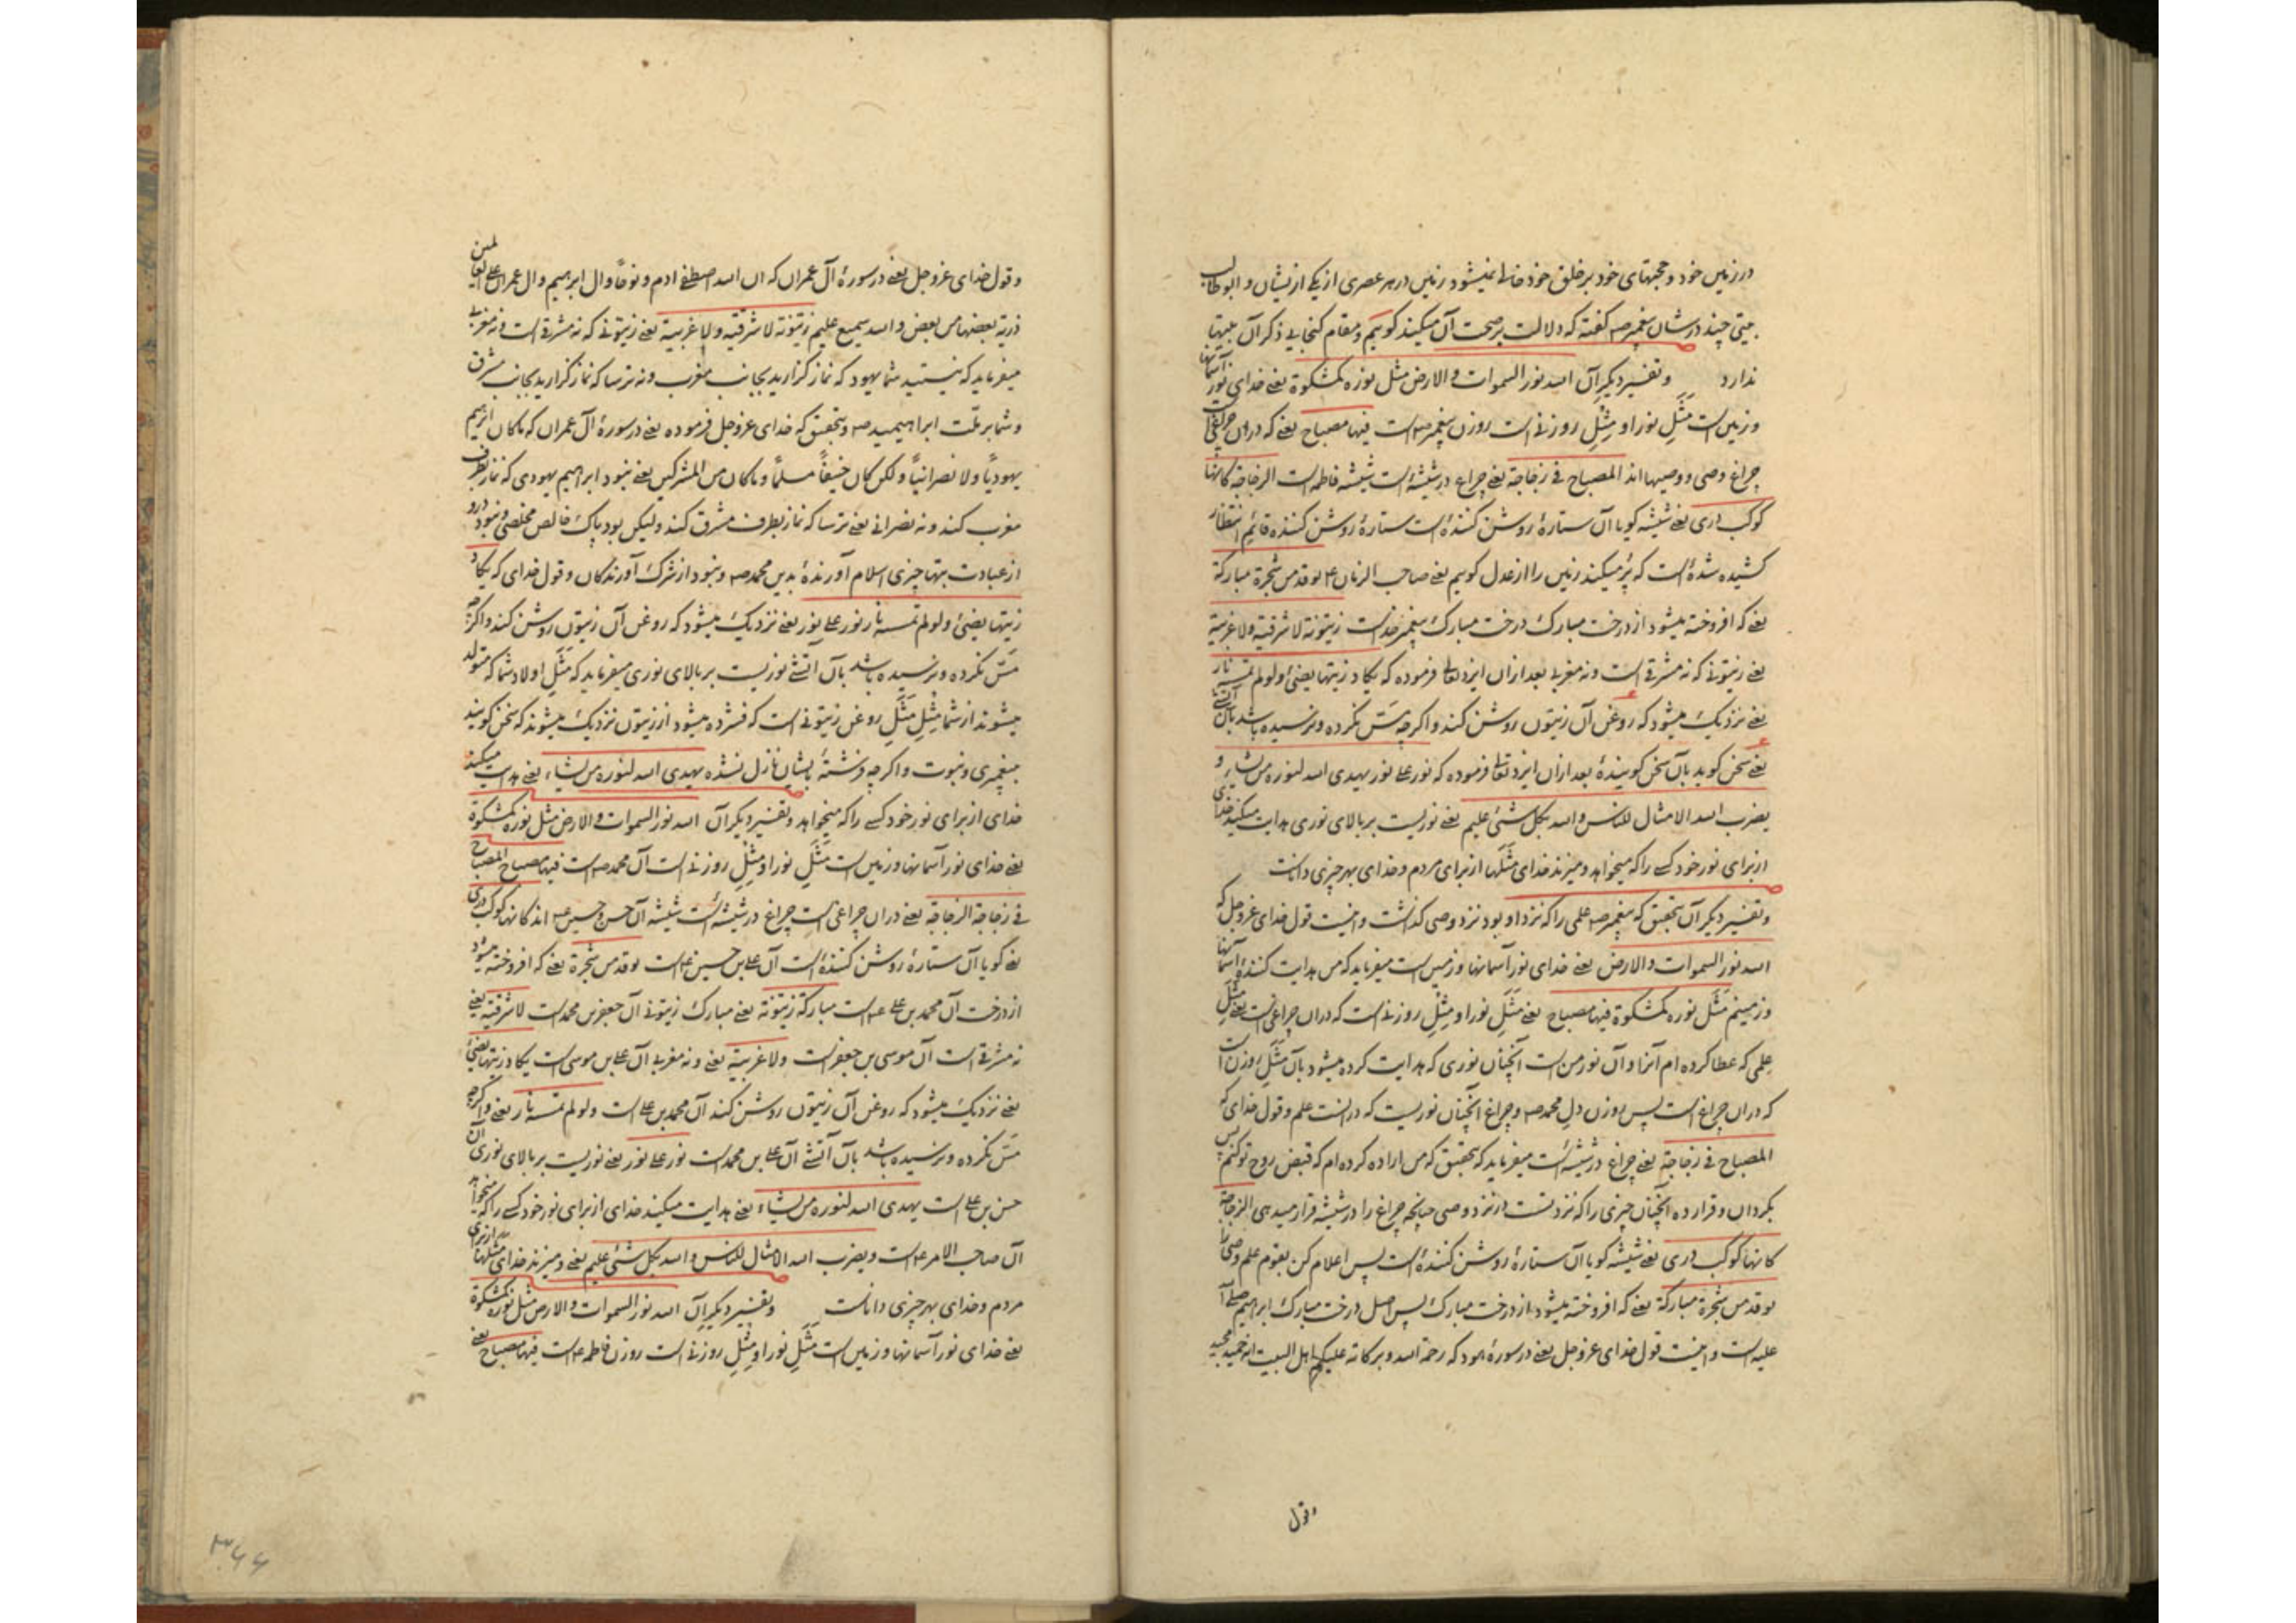 در زمین خود و حجتهای خود بر خلق خود خالی نمیشود زمین در هر عصری از یکی از ایشان و ابوطالب
بیتی چند در شان پیغمبر صه گفته که دلالت بر صحت آن میکند گوییم و مقام گنجایی ذکر آن بیتها
ندارد و تفسیر دیگر آن الله نور السموات والارض مثل نوره کمشکوة یعنی خدای نور آسمانها
و زمین است مَثَلِ نور او مِثْلِ روزنی است روزن پیغمبر صه است فیها مصباح یعنی که در ان چراغی است
چراغ وصی و وصیها اند المصباح فی زجاجة یعنی چراغ در شیشهٔ است شیشه فاطمه است الزجاجة کانها
کوکب دری یعنی شیشه کویا آن ستارهٔ روشن کنندهٔ است ستارهٔ روشن کننده قائم انتظار
کشیده شدهٔ است که پُر میکند زمین را از عدل گوییم یعنی صاحب الزمان ع یوقد من شجرة مبارکة
یعنی که افروخته میشود از درخت مبارک درخت مبارک پیغمبر خداست زیتونة لا شرقیة ولا غربیة
یعنی زیتونی که نه مشرقی است و نه مغربی بعد ازان ایزد تعالی فرموده که یکاد زیتها یضیئ و لو لم تمسسه نار
یعنی نزدیک میشود که روغن آن زیتون روشن کند و اگرچه مَسّ نکرده و نرسیده باشد بآن آتشی
یعنی سخن گوید بآن سخن گویندهٔ بعد ازان ایزد تعالی فرموده که نور علی نور یهدی الله لنوره من یشاء و
یضرب الله الامثال للناس والله بکل شئ علیم یعنی نوریست بر بالای نوری هدایت میکند خدای
از برای نور خود کسی را که میخواهد و میزند خدای مثلها از برای مردم و خدای بهر چیزی داناست
و تفسیر دیگر آن بتحقیق که پیغمبر صه علمی را که نزد او بود نزد وصی گذاشت و اینست قول خدای عزوجل که
الله نور السموات والارض یعنی خدای نور آسمانها و زمین است میفرماید که من هدایت کنندهٔ آسمانها
و زمینم مثل نوره کمشکوة فیها مصباح یعنی مَثَلِ نور او مِثْلِ روزنی است که دران چراغی است یعنی مثل
علمی که عطا کرده ام آنرا و آن نور من است آنچنان نوری که هدایت کرده میشود بآن مَثَلِ روزن است
که دران چراغ است پس روزن دل محمد صه و چراغ آنچنان نوریست که در انست علم و قول خدای که
المصباح فی زجاجة یعنی چراغ در شیشهٔ است میفرماید که بتحقیق که من اراده کرده ام که قبض روح تو کنم پس
بگردان و قرار ده آنچنان چیزی را که نزد تست از نزد وصی چنانچه چراغ را در شیشه قرار میدهی الزجاجة
کانها کوکب دری یعنی شیشه کویا آن ستارهٔ روشن کنندهٔ است پس اعلام کن بقوم علم وصی را
یوقد من شجرة مبارکة یعنی که افروخته میشود از درخت مبارک پس اصل درخت مبارک ابراهیم صلی الله
علیه است و اینست قول خدای عزوجل یعنی در سورهٔ هود که رحمة الله و برکاته علیکم اهل البیت انه حمید مجید
و قول
و قول خدای عزوجل یعنی در سورهٔ آل عمران که ان الله اصطفی ادم و نوحًا وال ابرهیم وال عمران علی العالمین
ذریة بعضها من بعض والله سمیع علیم زیتونة لا شرقیة ولا غربیة یعنی زیتونی که نه مشرقی است و نه مغربی
میفرماید که نیستید شما یهود که نماز گزارید بجانب مغرب و نه ترسا که نماز گزارید بجانب مشرق
و شما بر ملت ابراهیمید صه و بتحقیق که خدای عزوجل فرموده یعنی در سورهٔ آل عمران که ماکان ابرهیم
یهودیًا ولا نصرانیًا ولکن کان حنیفًا مسلمًا و ماکان من المشرکین یعنی نبود ابراهیم یهودی که نماز بطرف
مغرب کند و نه نصرانی یعنی ترسا که نماز بطرف مشرق کند ولیکن بود پاک خالص مخلصی و نبود درو
از عبادت بتها چیزی اسلام آورندهٔ بدین محمد صه و نبود از شرک آورندکان و قول خدای که یکاد
زیتها یضیئ ولو لم تمسسه نار نور علی نور یعنی نزدیک میشود که روغن آن زیتون روشن کند و اگرچه
مَسّ نکرده و نرسیده باشد بآن آتشی نوریست بر بالای نوری میفرماید که مَثَلِ اولاد شما که متولد
میشوند از شما مِثْلِ مَثَلِ روغن زیتونی است که فشرده میشود از زیتون نزدیک میشوند که سخن گویند
بپیغمبری و نبوت و اگرچه فرشتهٔ بایشان نازل نشده یهدی الله لنوره من یشاء یعنی هدایت میکند
خدای از برای نور خود کسی را که میخواهد و تفسیر دیگر آن الله نور السموات والارض مثل نوره کمشکوة
یعنی خدای نور آسمانها و زمین است مَثَلِ نور او مِثْلِ روزنی است آن محمد صه است فیها مصباح المصباح
فی زجاجة الزجاجة یعنی دران چراغی است چراغ در شیشهٔ است شیشه آن حسن و حسین ع اند کانها کوکب دری
یعنی کویا آن ستارهٔ روشن کنندهٔ است آن علی بن حسین ع است یوقد من شجرة یعنی که افروخته میشود
از درخت آن محمد بن علی ع است مبارکة زیتونة یعنی مبارک زیتونی آن جعفر بن محمد است لا شرقیة یعنی
نه مشرقی است آن موسی بن جعفر است ولا غربیة یعنی و نه مغربی آن علی بن موسی است یکاد زیتها یضیئ
یعنی نزدیک میشود که روغن آن زیتون روشن کند آن محمد بن علی است ولو لم تمسسه نار یعنی و اگرچه
مَسّ نکرده و نرسیده باشد بآن آتشی آن علی بن محمد است نور علی نور یعنی نوریست بر بالای نوری آن
حسن بن علی است یهدی الله لنوره من یشاء یعنی هدایت میکند خدای از برای نور خود کسی را که میخواهد
آن صاحب الامر ع است و یضرب الله الامثال للناس والله بکل شئ علیم یعنی و میزند خدای مثلها از برای
مردم و خدای بهر چیزی داناست و تفسیر دیگر آن الله نور السموات والارض مثل نوره کمشکوة
یعنی خدای نور آسمانها و زمین است مَثَلِ نور او مِثْلِ روزنی است روزن فاطمه ع است فیها مصباح یعنی
۳۶۶